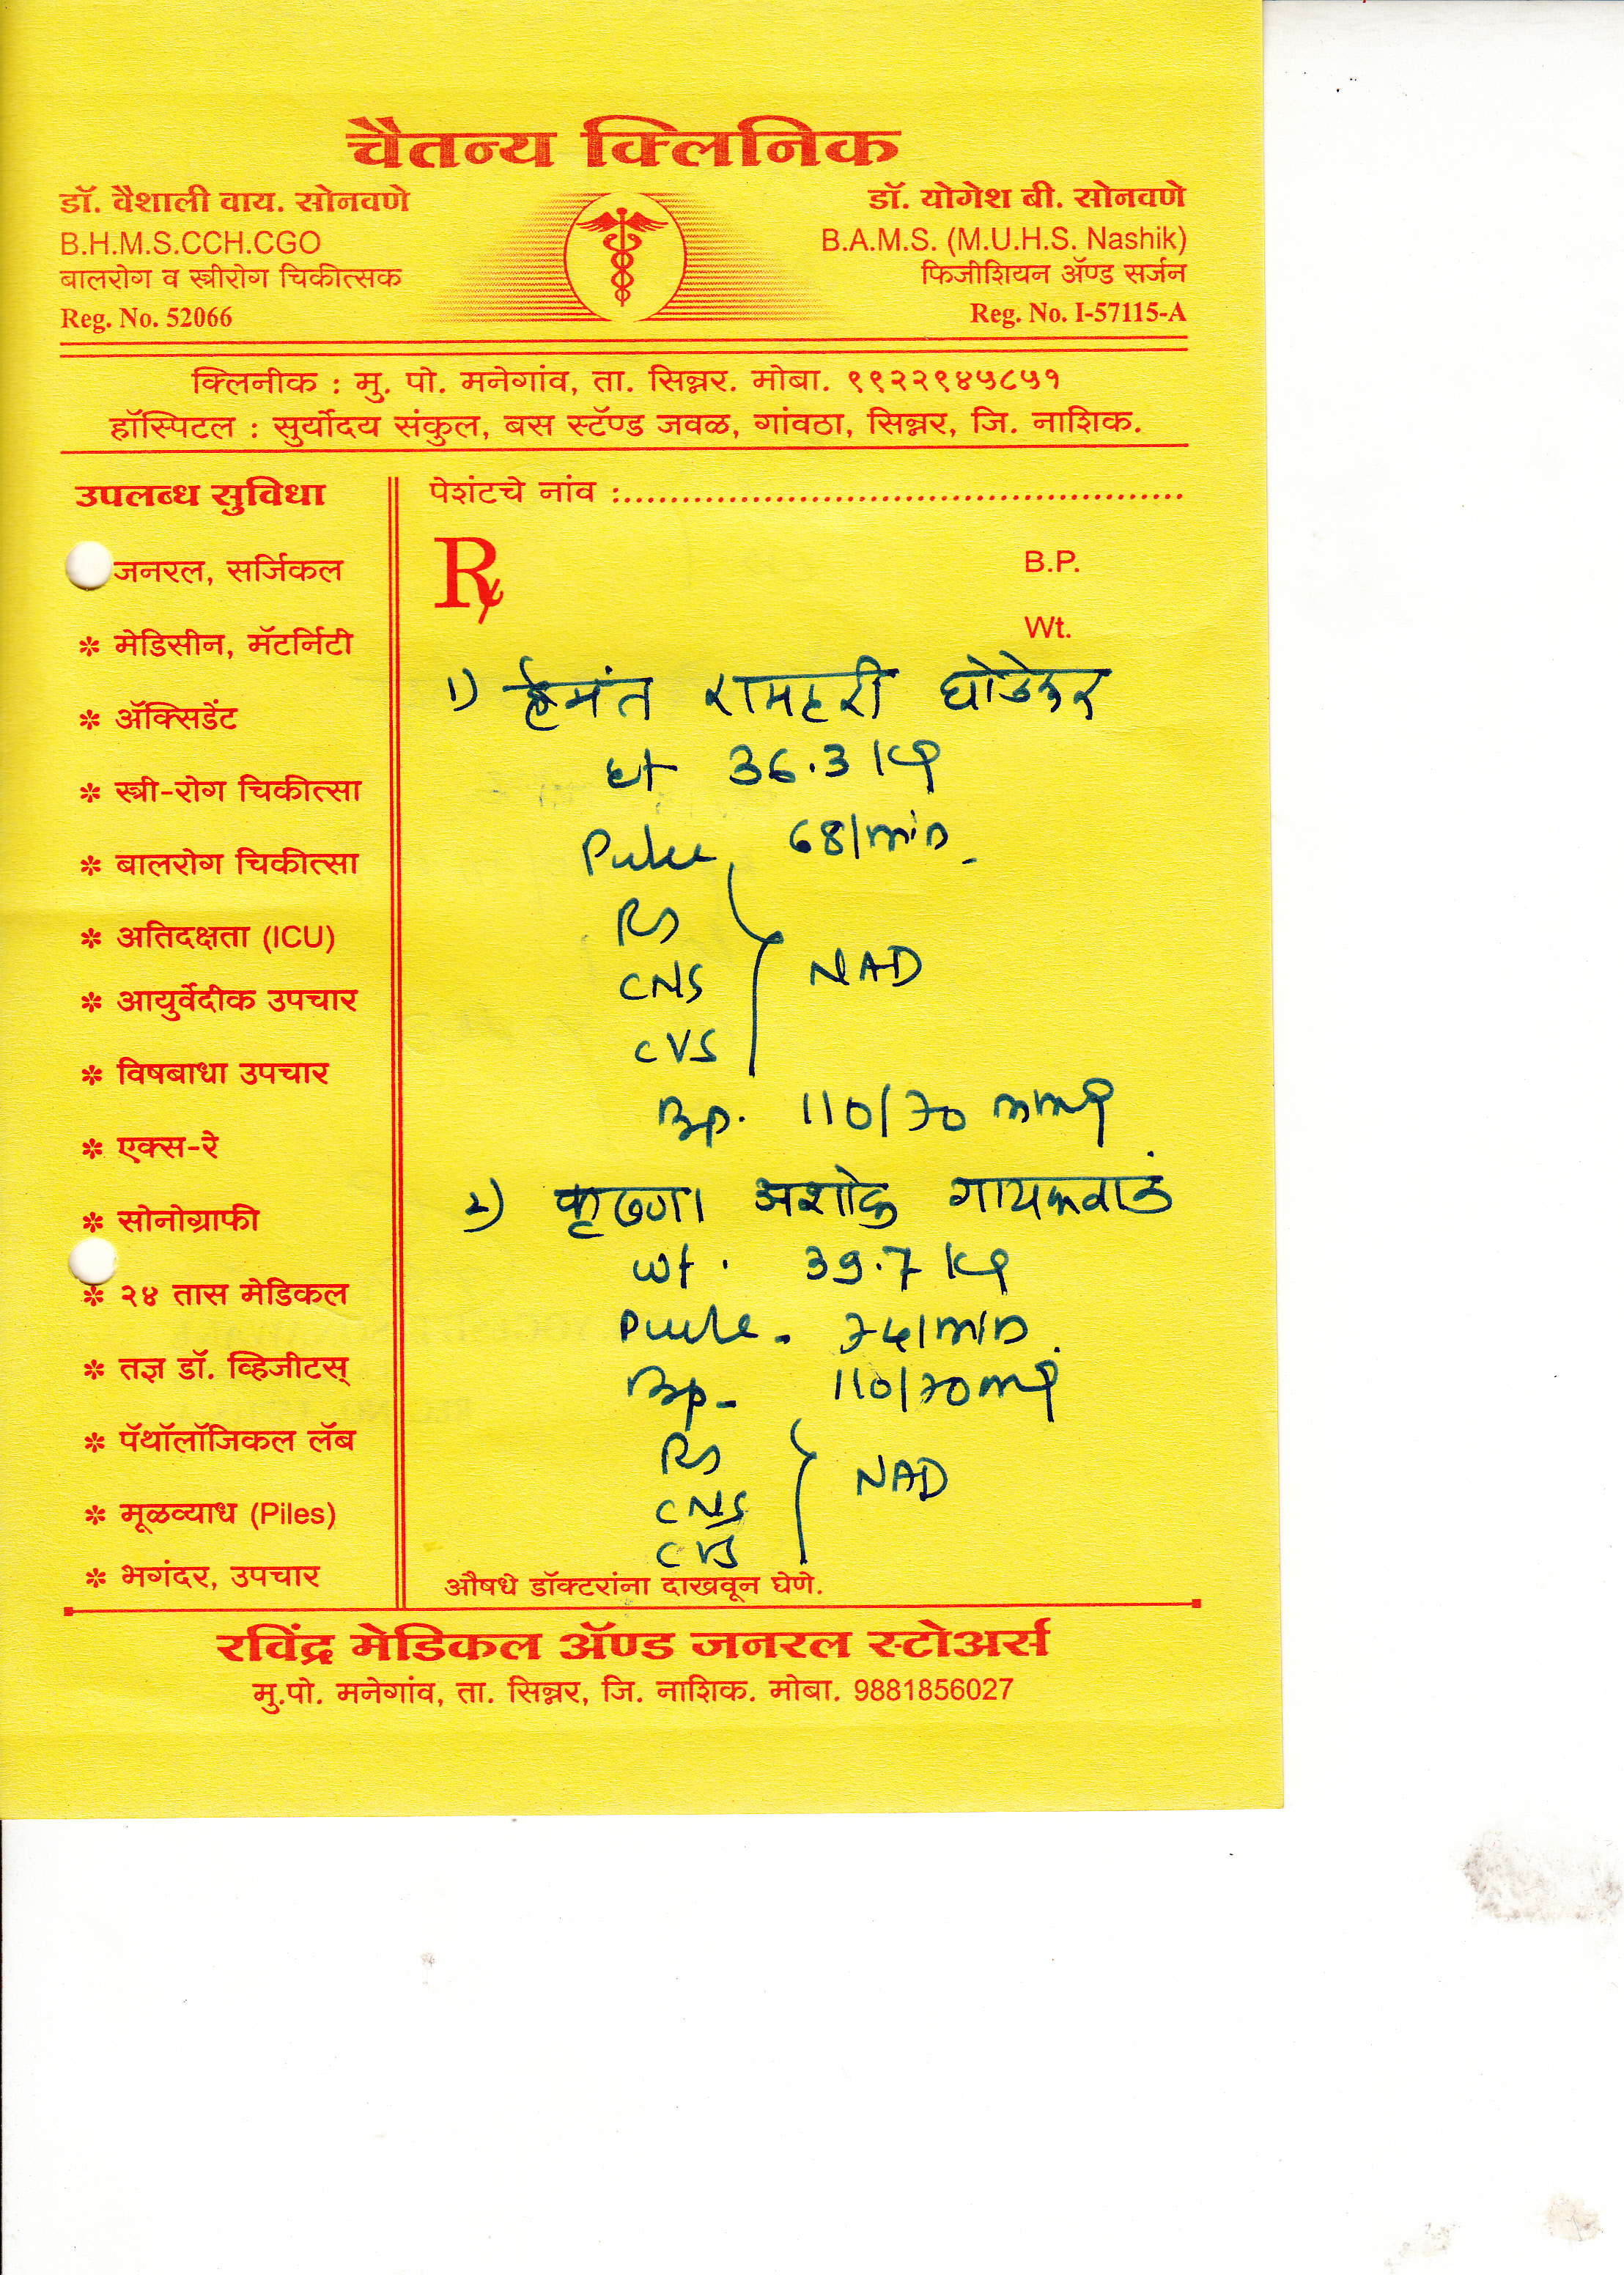 चैतन्य क्लिनिक
डॉ. वैशाली वाय. सोनवणे
B.H.M.S.CCH.CGO
बालरोग व स्त्रीरोग चिकीत्सक
Reg. No. 52066
डॉ. योगेश बी. सोनवणे
B.A.M.S. (M.U.H.S. Nashik)
फिजीशियन ॲण्ड सर्जन
Reg. No. I-57115-A
क्लिनीक : मु. पो. मनेगांव, ता. सिन्नर. मोबा. ९९२२९४५८५१
हॉस्पिटल : सुर्योदय संकुल, बस स्टॅण्ड जवळ, गांवठा, सिन्नर, जि. नाशिक.
उपलब्ध सुविधा
जनरल, सर्जिकल
* मेडिसीन, मॅटर्निटी
* ॲक्सिडेंट
* स्त्री-रोग चिकीत्सा
* बालरोग चिकीत्सा
* अतिदक्षता (ICU)
* आयुर्वेदीक उपचार
* विषबाधा उपचार
* एक्स-रे
* सोनोग्राफी
* २४ तास मेडिकल
* तज्ञ डॉ. व्हिजीटस्
* पॅथॉलॉजिकल लॅब
* मूळव्याध (Piles)
* भगंदर, उपचार
पेशंटचे नांव :
Rx
B.P.
Wt.
1) हेमंत रामहरी घोडेकर
Wt 36.3 Kg
Pulse 68/min
RS
CNS NAD
CVS
Bp. 110/70 mmg
2) कृष्णा अशोक गायकवाड
Wt. 39.7 Kg
Pulse - 74/min
Bp - 110/70 mg
RS
CNS NAD
CVS
औषधे डॉक्टरांना दाखवून घेणे.
रविंद्र मेडिकल ॲण्ड जनरल स्टोअर्स
मु.पो. मनेगांव, ता. सिन्नर, जि. नाशिक. मोबा. 9881856027